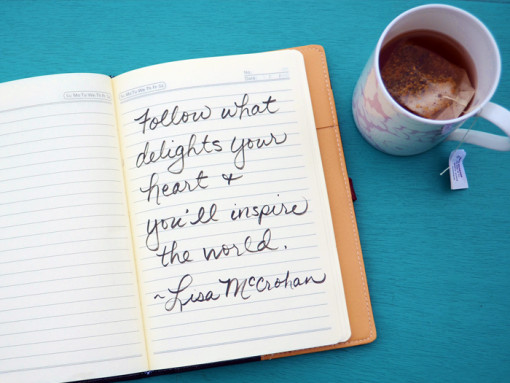 Follow what
delights your
heart &
you'll inspire
the world.
~Lisa McCrohan